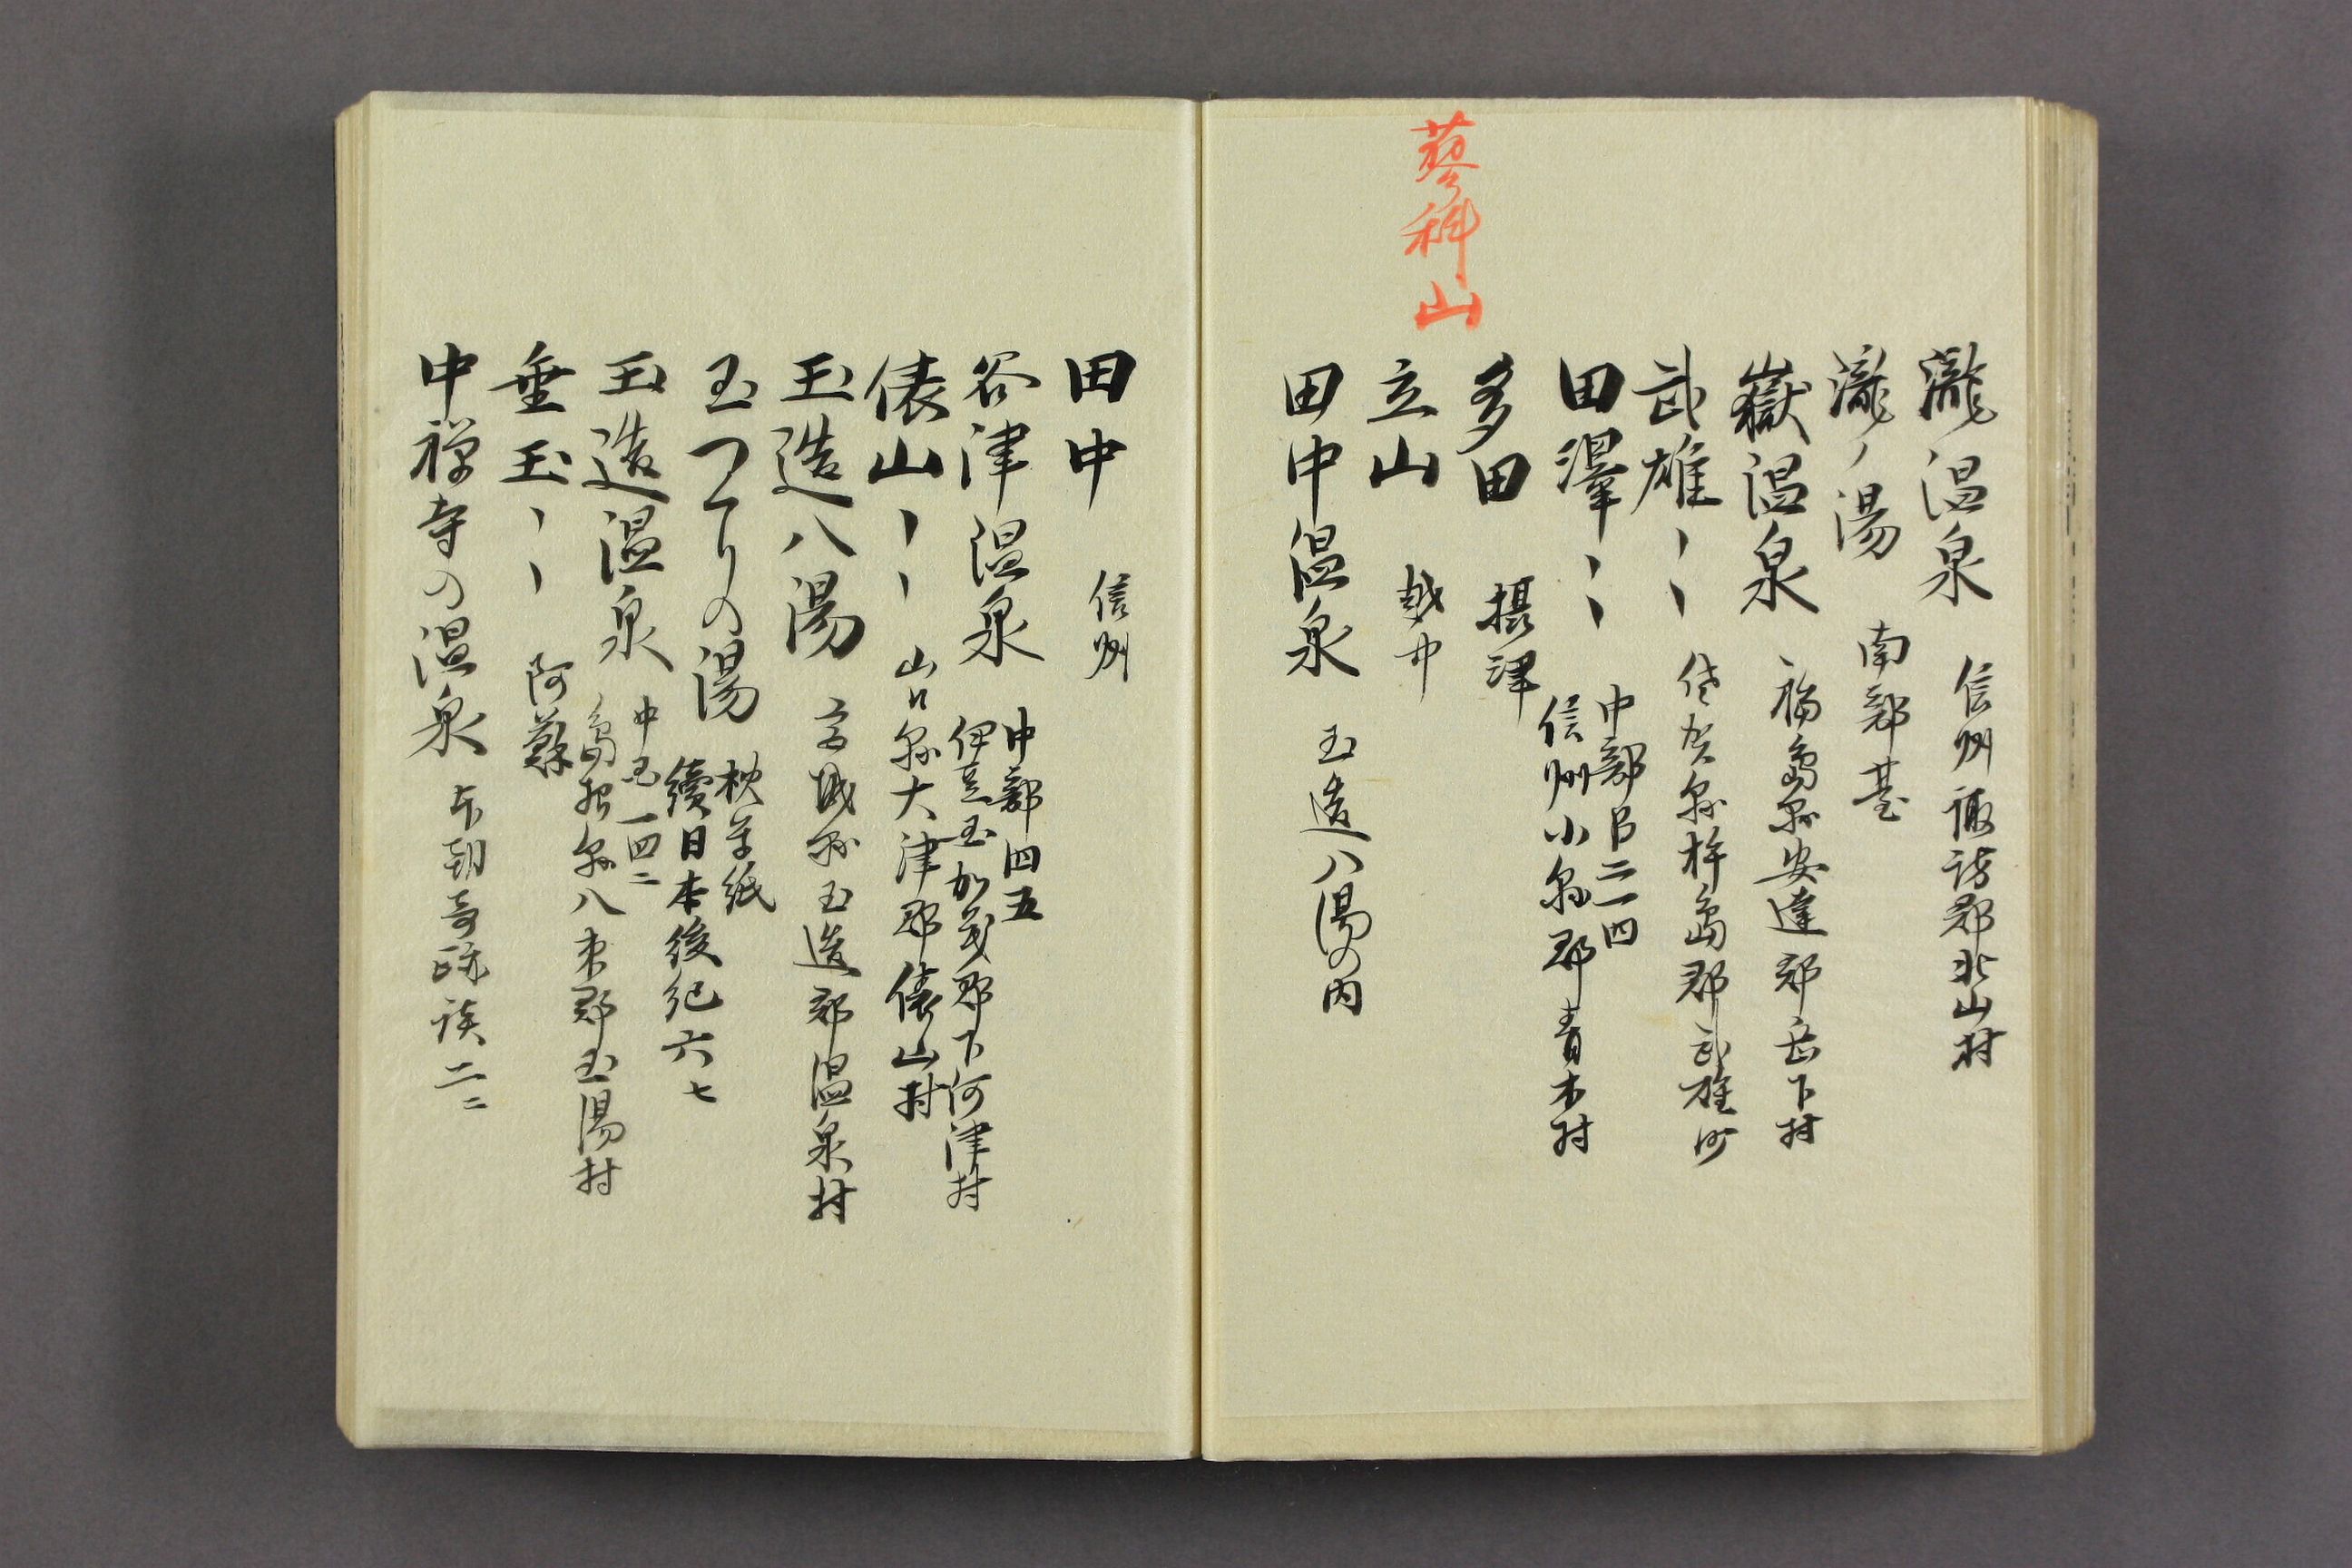 瀧温泉 信州諏訪郡北山村
瀧ノ湯 南部藝
嶽温泉 福島縣安達郡岳下村
武雄〻〻 佐賀縣杵島郡武雄町
田澤〻〻 中部日二一四
信州小縣郡青木村
多田 摂津
蓼科山
立山 越中
田中温泉 玉造八湯の内
田中 信州
谷津温泉 中部四五
伊豆国加茂郡下河津村
俵山〻〻 山口縣大津郡俵山村
玉造八湯 宮城縣玉造郡温泉村
玉つくりの湯 枕草紙
續日本後紀六七
玉造温泉 中国一四二
島根縣八束郡玉湯村
垂玉〻〻 阿蘇
中禅寺の温泉 本朝奇跡談二二